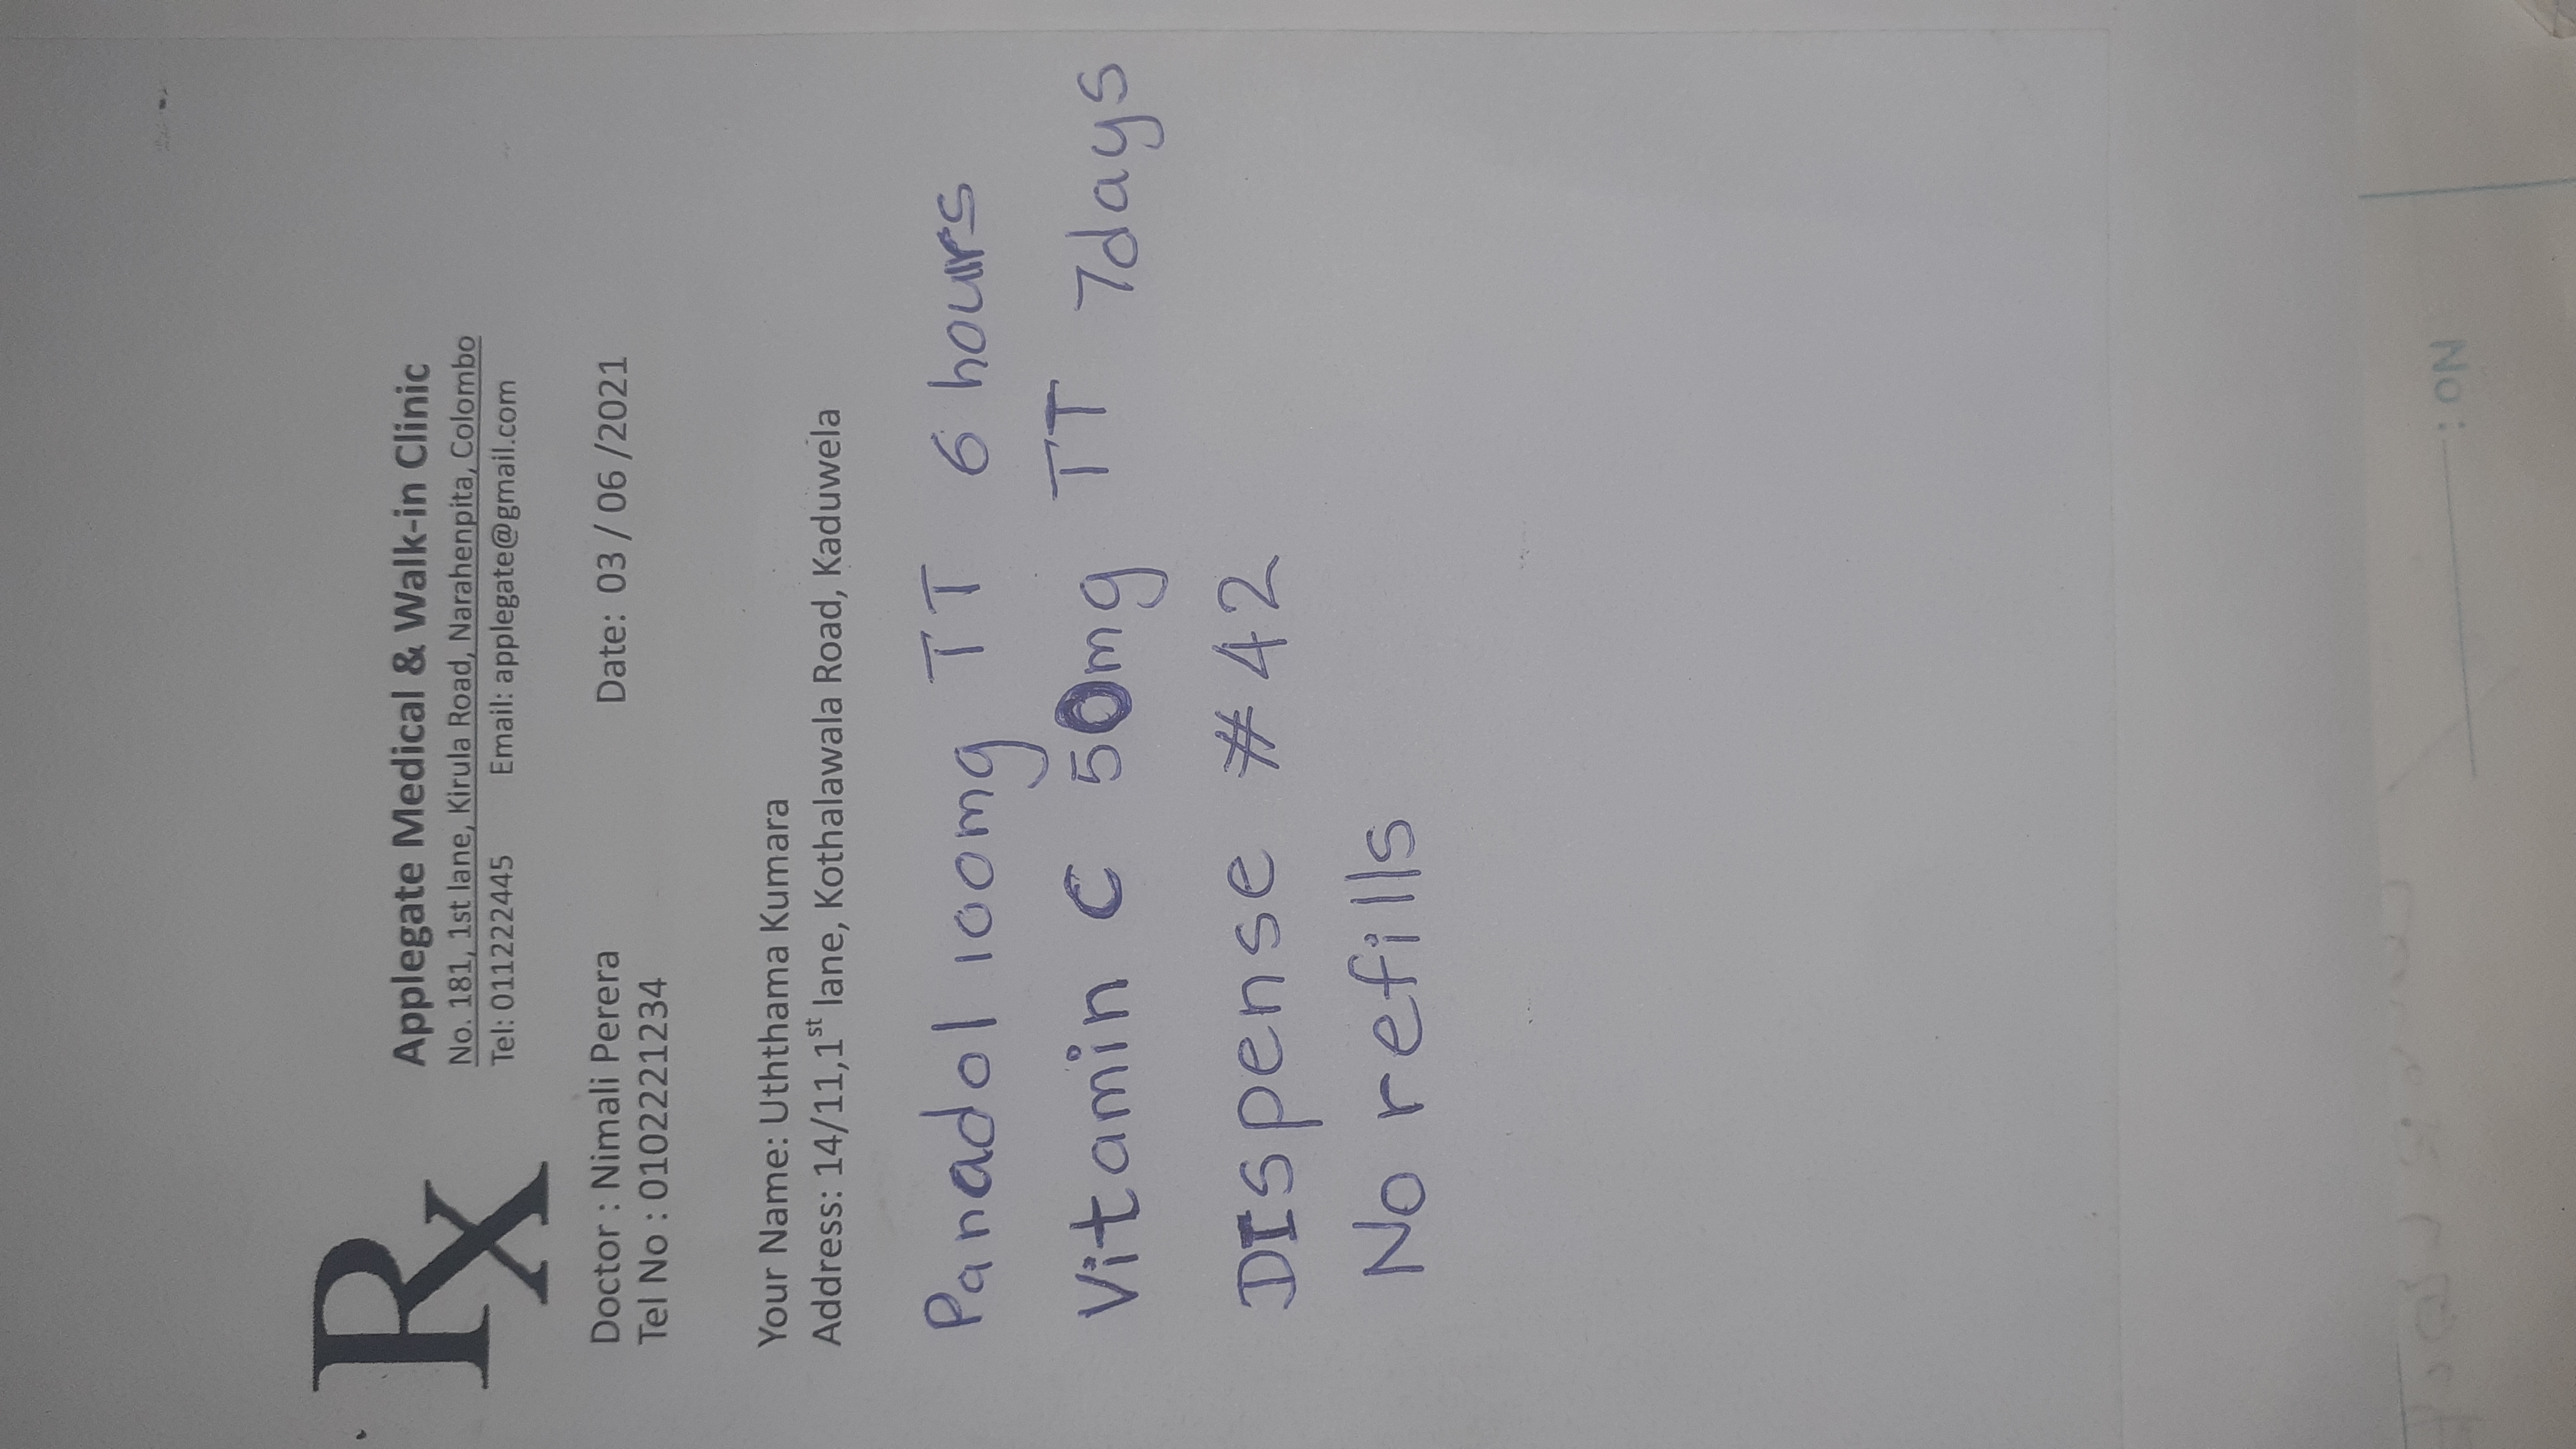 Rx
Applegate Medical & Walk-in Clinic
No. 181, 1st lane, Kirula Road, Narahenpita, Colombo
Tel: 01122222445 Email: applegate@gmail.com
Doctor : Nimali Perera Date: 03 / 06 /2021
Tel No : 0102221234
Your Name: Uththama Kumara
Address: 14/11,1st lane, Kothalawala Road, Kaduwela
Panadol 100mg TT 6 hours
Vitamin C 50mg TT 7days
DIspense #42
No refills
No: